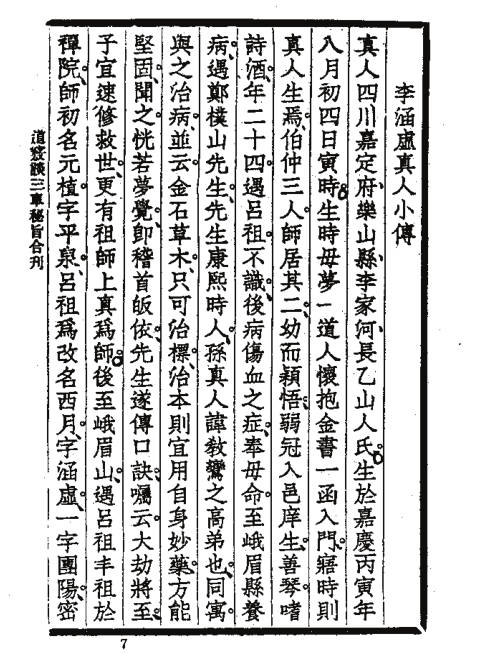 李涵虛真人小傳
真人四川嘉定府、樂山縣、李家河、長乙山人氏。生於嘉慶丙寅年
八月初四日寅時。生時毋夢一道人懷抱金書一函入門。寤時則
真人生焉。伯仲三人。師居其二。幼而穎悟。弱冠入邑庠生。善琴、嗜
詩酒。年二十四。遇呂祖。不識。後病傷血之症。奉毋命。至峨眉縣養
病。遇鄭樸山先生。先生康熙時人。孫真人諱敎鸞之高弟也。同寓
與之治病。並云金石草木。只可治標。治本則宜用自身妙藥。方能
堅固。聞之恍若夢覺。卽稽首皈依。先生遂傳口訣。囑云大劫將至。
子宜速修救世。更有祖師上真爲師。後至峨眉山。遇呂祖丰祖於
禪院。師初名元植。字平泉。呂祖爲改名西月、字涵虛、一字團陽。密
道竅談三車秘旨合刊
7